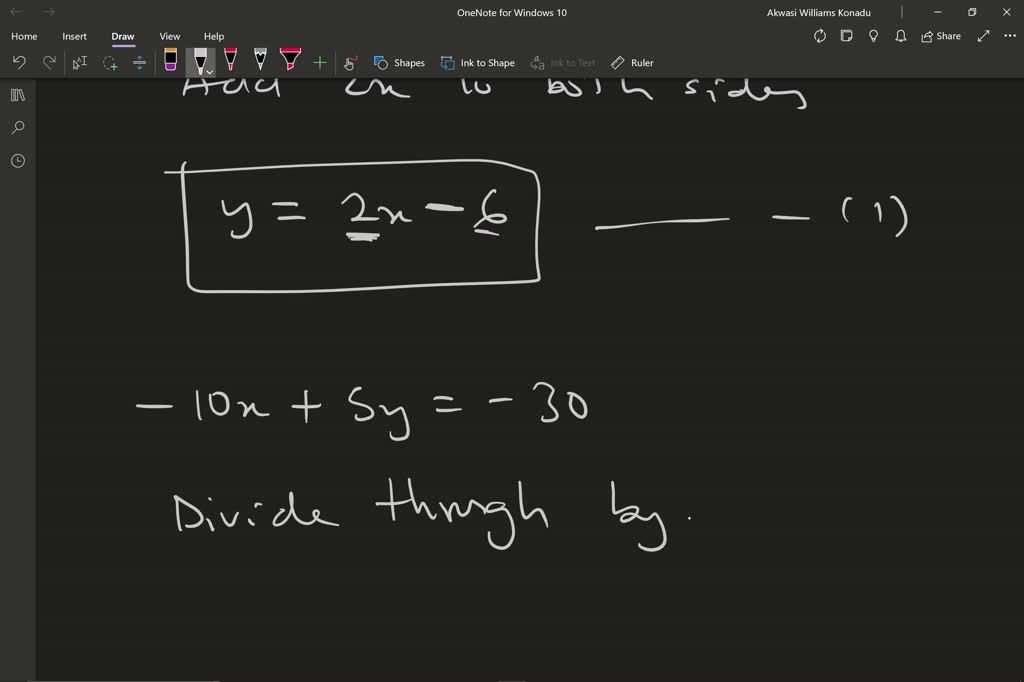 OneNote for Windows 10
Akwasi Williams Konadu
Home Insert Draw View Help
Share
Shapes Ink to Shape Ink to Text Ruler
Add 2x to both sides
y = 2x - 6 — - (1)
- 10x + 5y = - 30
Divide through by.